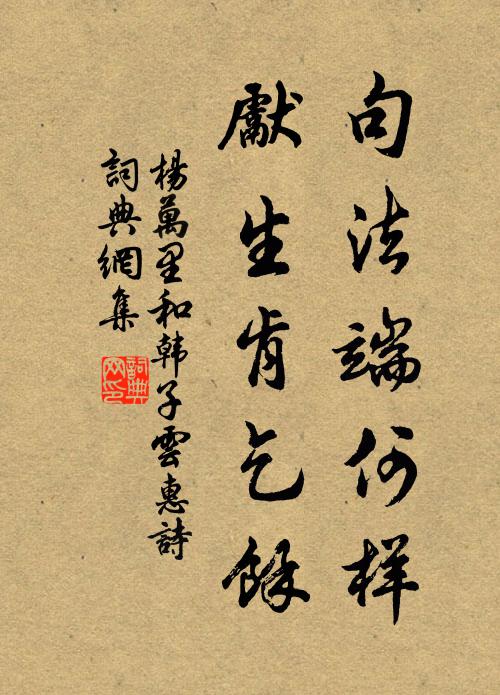 句法端何样
獻生肯乞餘
楊萬里和韩子雲惠詩
詞典網集
詞典
网印